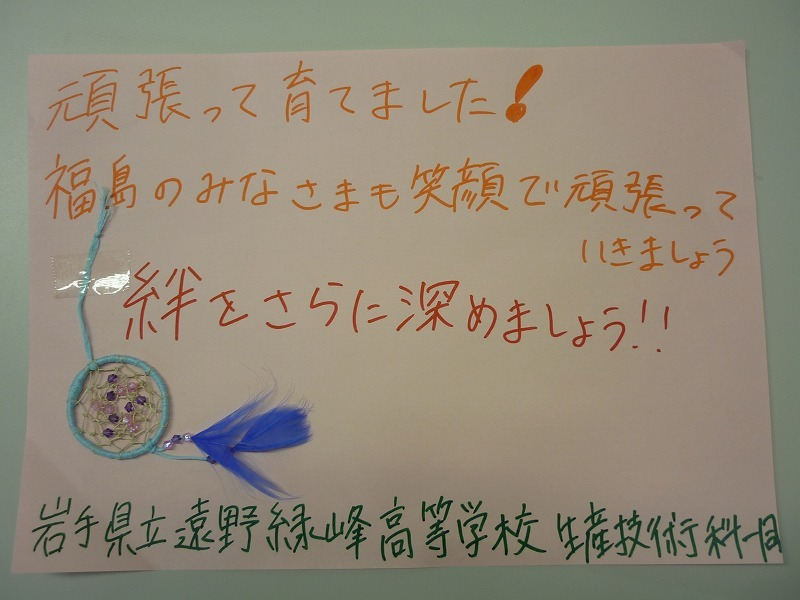 頑張って育てました!
福島のみなさまも笑顔で頑張って
いきましょう
絆をさらに深めましょう!!
岩手県立遠野緑峰高等学校 生産技術科一同